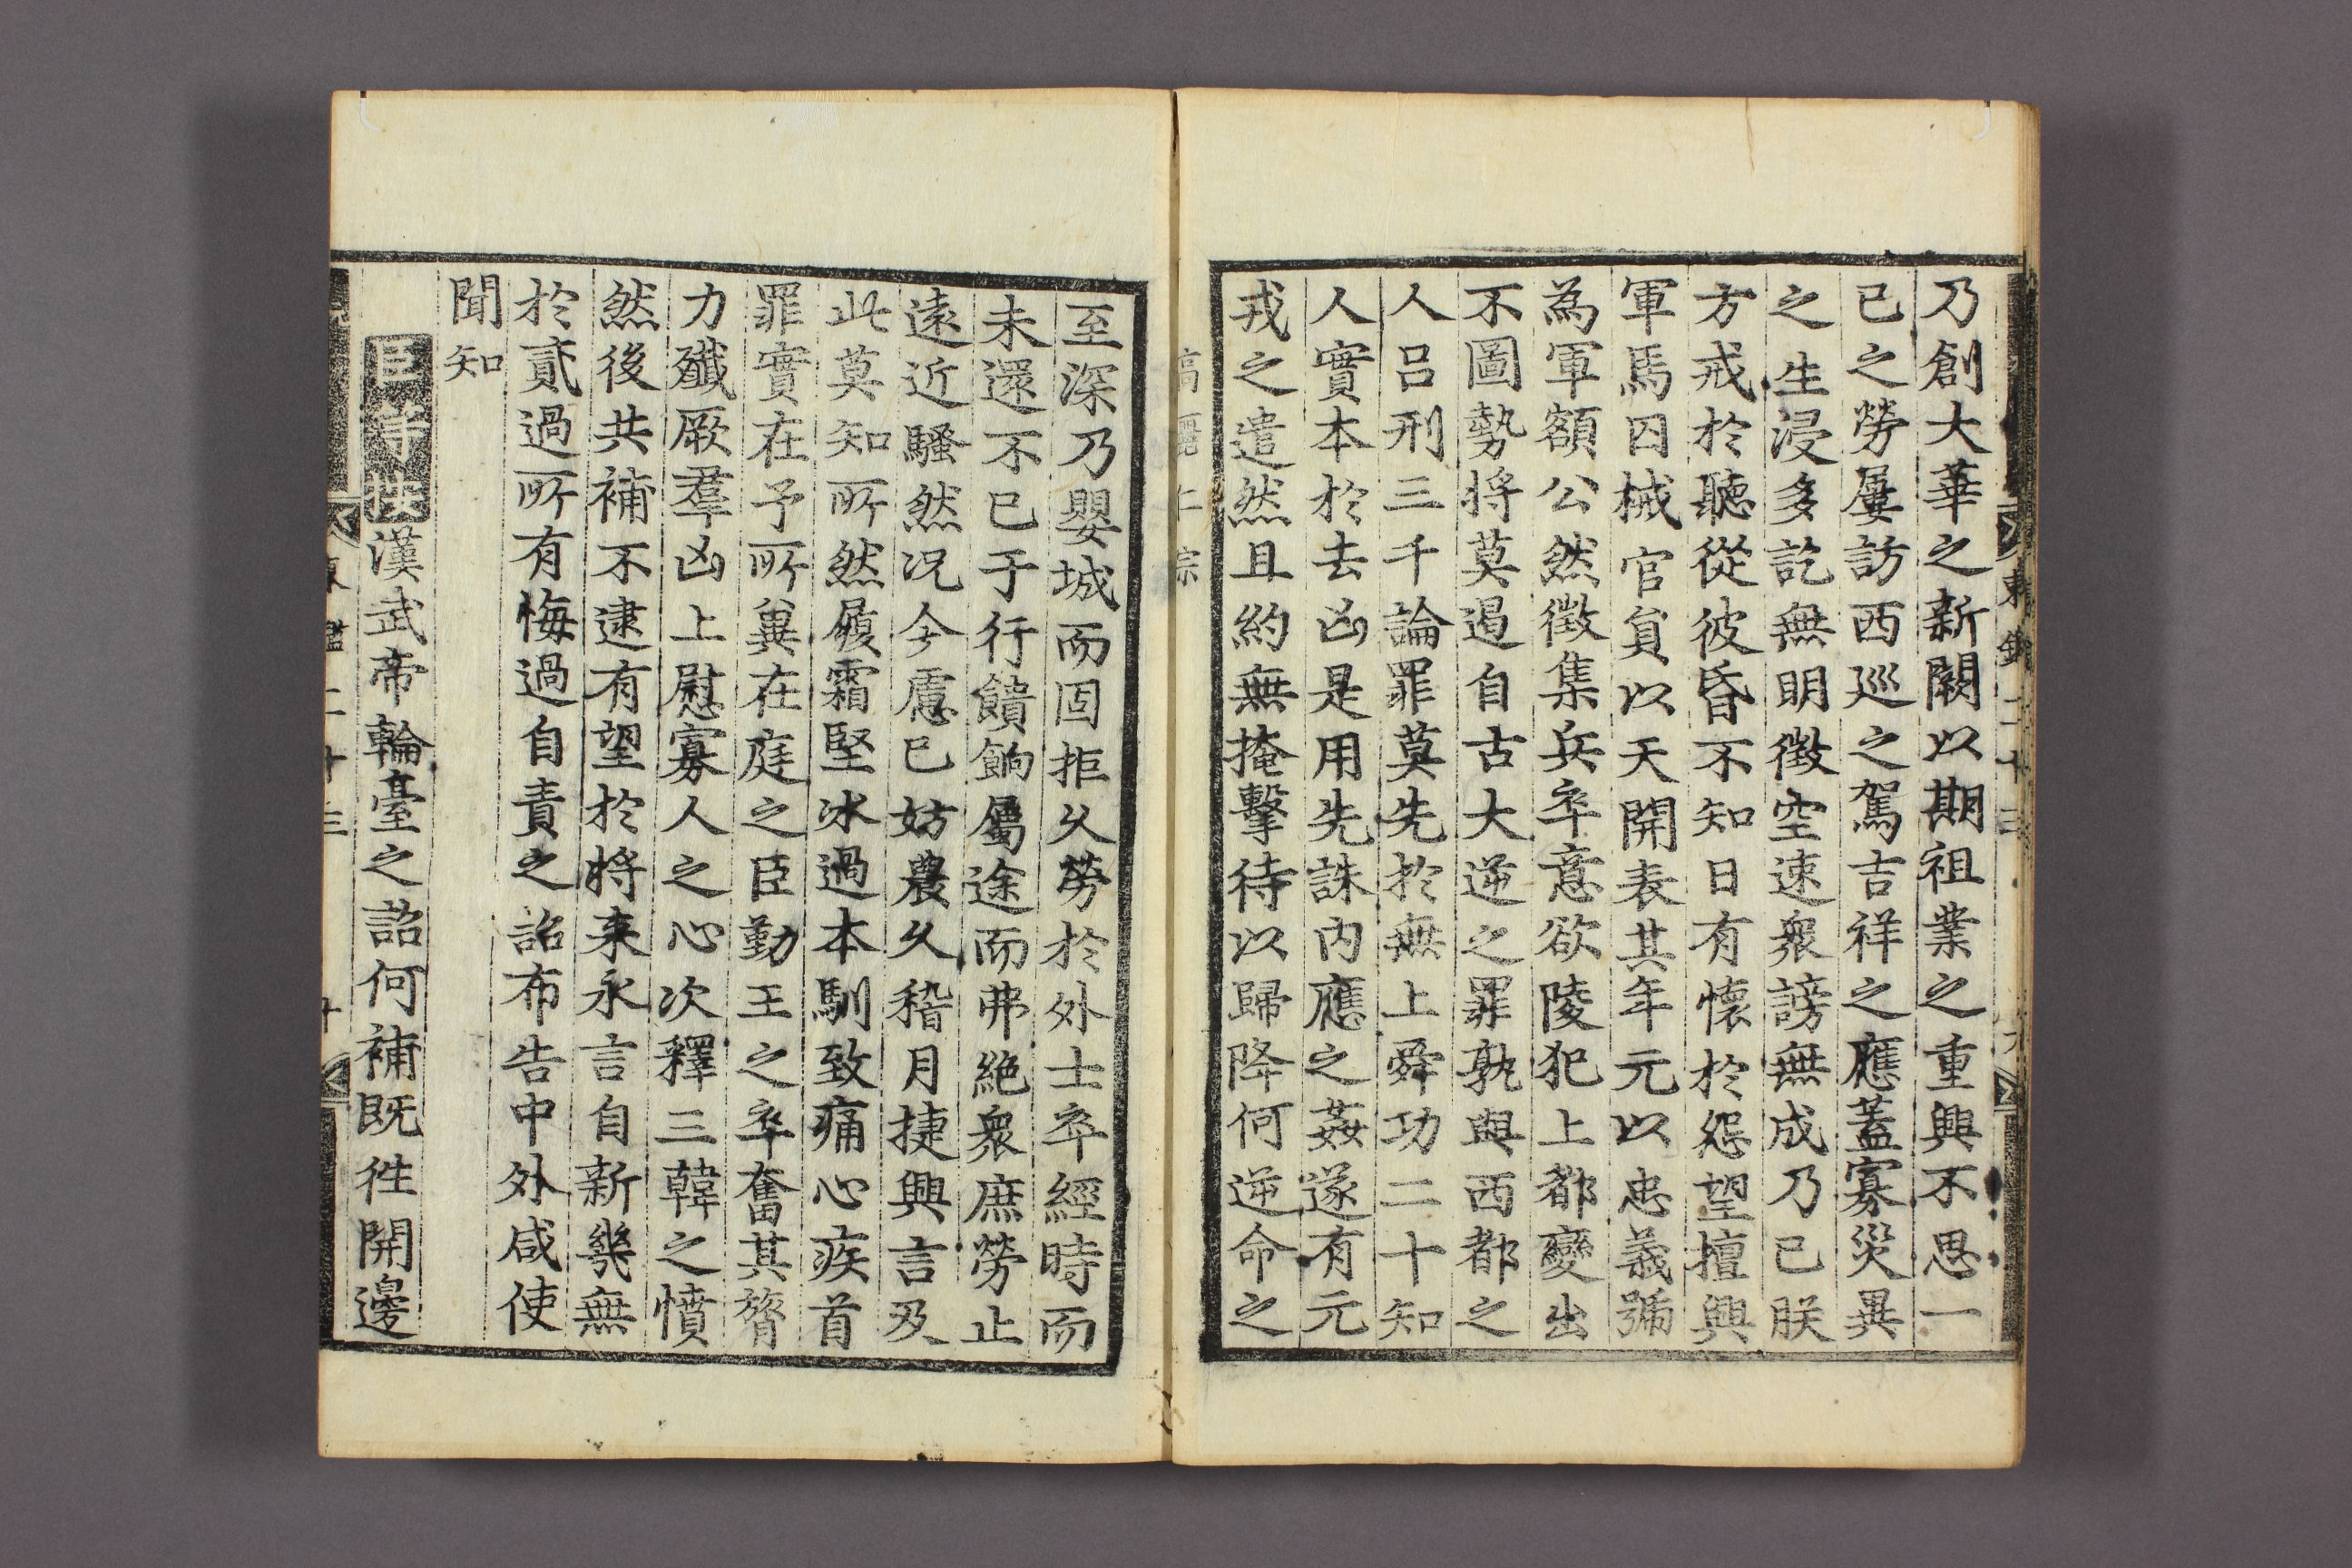 東鑑二十三
乃創大華之新闕以期祖業之重興不思一
已之勞屢訪西巡之駕吉祥之應蓋寡災異
之生浸多訖無明徵空速衆謗無成乃已朕
方戒於聽從彼昏不知日有懷於怨望擅興
軍馬囚械官貟以天開表其年元以忠義號
為軍額公然徵集兵卒意欲陵犯上都變出
不圖勢将莫遏自古大逆之罪孰與西都之
人呂刑三千論罪莫先於無上舜功二十知
人實本於去凶是用先誅内應之姦遂有元
戎之遣然且約無掩擊待以歸降何逆命之
高麗仁宗
至深乃嬰城而固拒久勞於外士卒經時而
未還不已于行饋餉屬途而弗絶衆庶勞止
遠近騷然况今慮已妨農久稽月捷興言及
此莫知所然履霜堅冰過本馴致痛心疾首
罪實在予所兾在庭之臣勤王之卒奮其膂
力殲厥羣凶上慰寡人之心次釋三韓之憤
然後共補不逮有望於將来永言自新幾無
於貳過所有悔過自責之詔布告中外咸使
聞知
漢武帝輪臺之詔何補既徃開邊
東鑑二十三 十